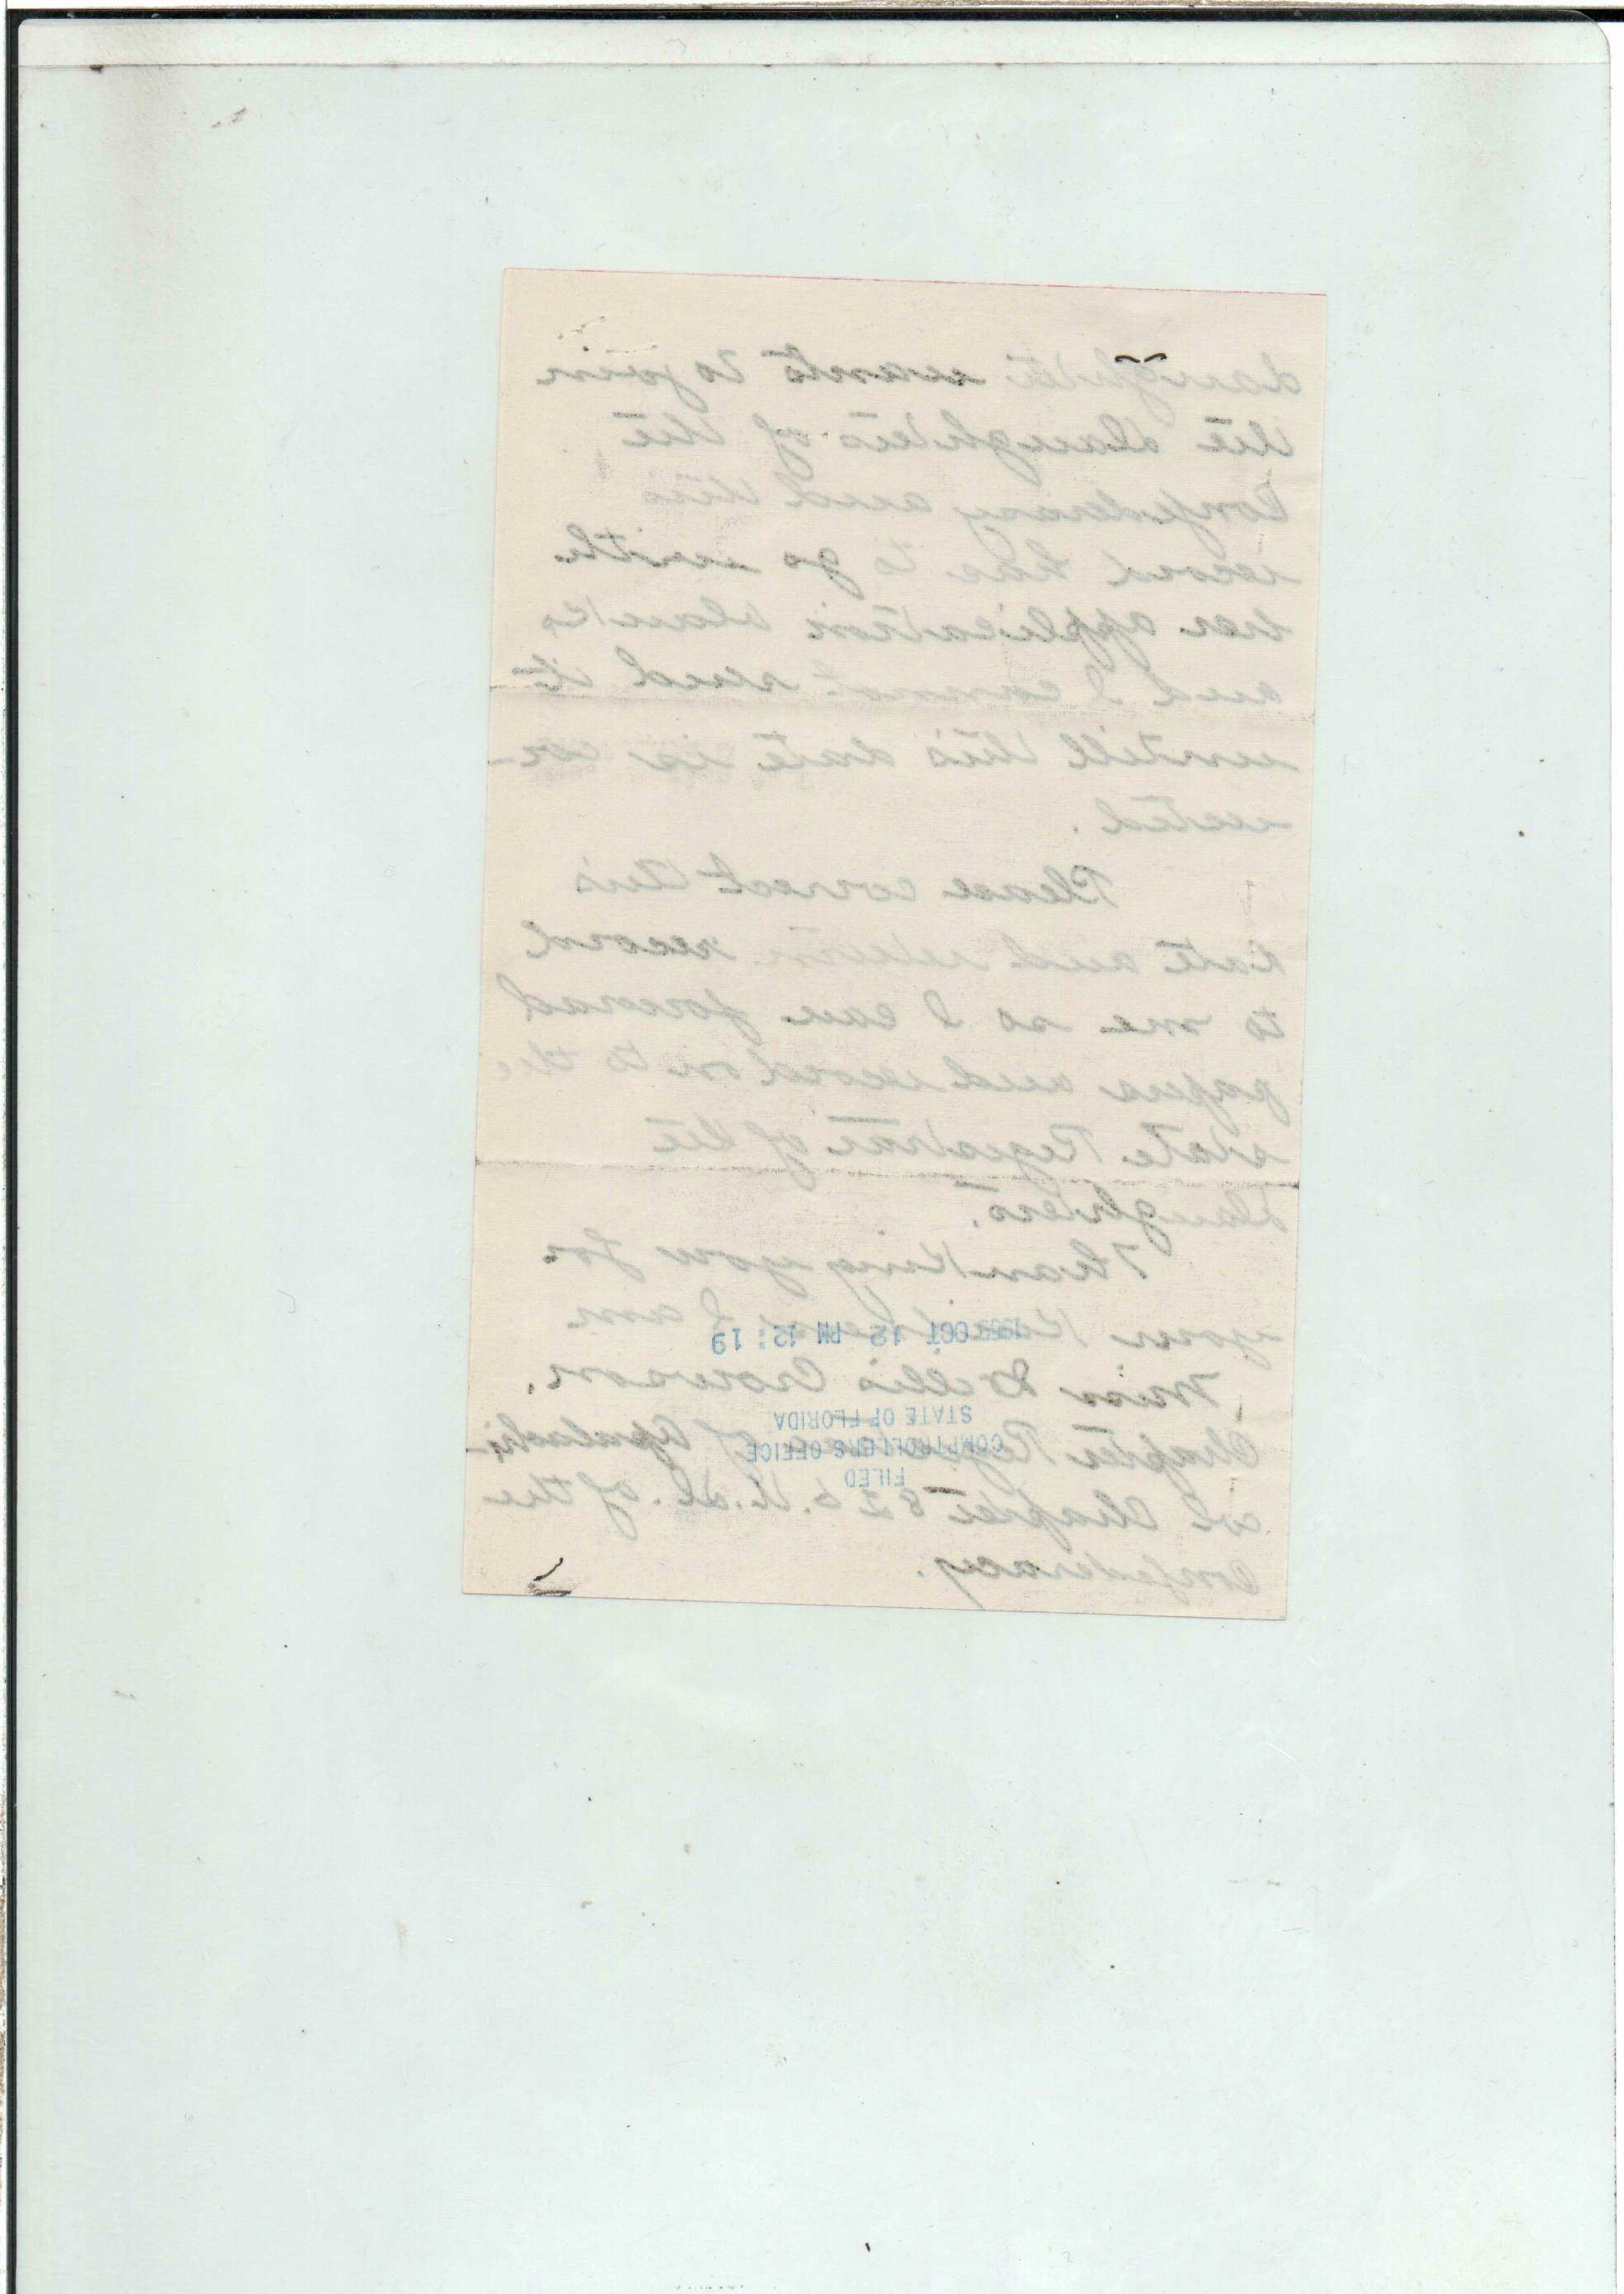 daughter wants to join
the Daughters of the
Confederacy and this
record has to go with
her application blanks
and I cannot send it
untill this date is cor-
rected.
Please correct this
date and return record
to me so I can forward
papers and record on to the
state Registrar of the
Daughters.
Thanking you for
your Kindness I am
OCT 12 PM 12:19
Miss Willis Crowson.
STATE OF FLORIDA
Chapter of Apalachi-
COMPTROLLERS OFFICE
FILED
col Chapter 826. U.D. of the
Confederacy.